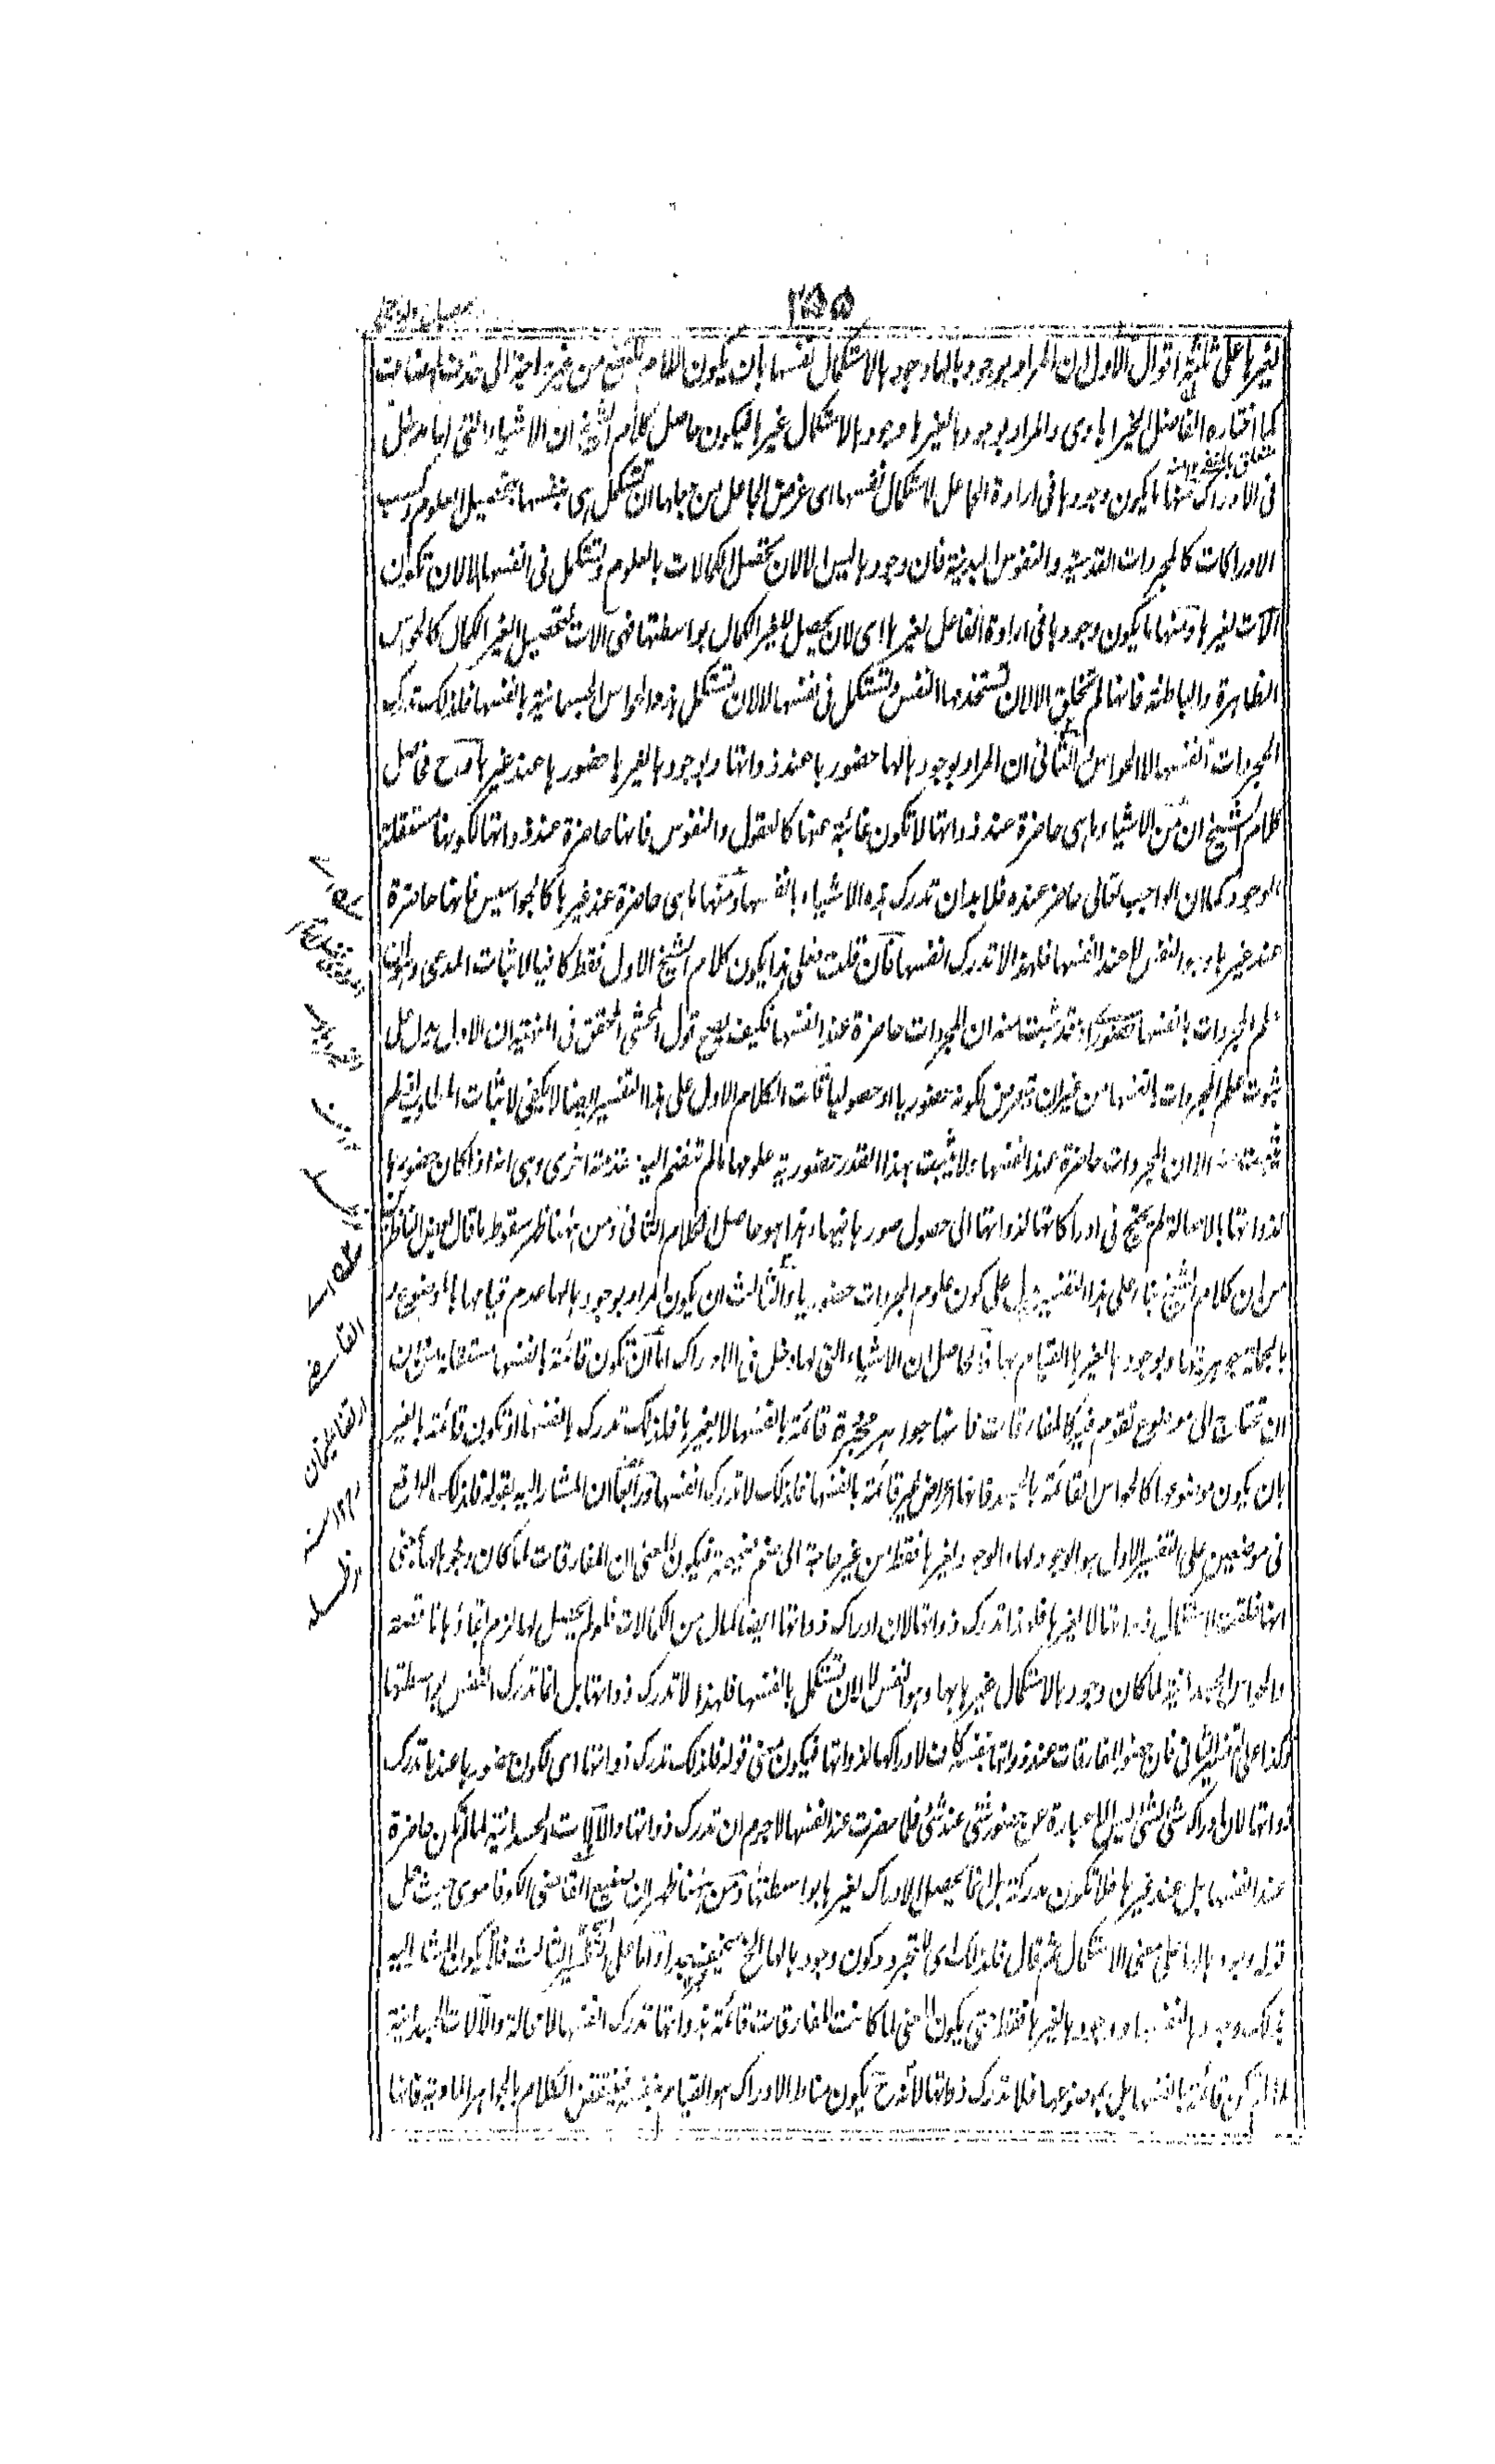 ۲۵۵
لغيرها على ثلثة اقوال الاول ان المراد بوجودها لها وجودها لاستكمال نفسها بان يكون اللام للنفع من غير حاجة الى مقدمة
كما اختاره الفاضل الخيرابادي والمراد بوجودها لغيرها وجودها لاستكمال غيرها فيكون حاصل كلام الشيخ ان الاشياء التي لها مدخل
في الادراك منها ما يكون وجودها في ارادة الجاعل لاستكمال نفسها اى غرض الجاعل من جعلها ان تستكمل هى بنفسها بتحصيل العلوم وكسب
الادراكات كالمجردات القدسية والنفوس البدنية فان وجودها ليس الا لان تحصل الكمالات بالعلوم وتستكمل في انفسها لا لان تكون
آلات لغيرها ومنها ما يكون وجودها في ارادة الفاعل لغيرها اى لان يحصل للغير الكمال بواسطتها فهى آلات لتحصيل الغير الكمال كالحواس
الظاهرة والباطنة فانها لم تخلق الا لان تستخدمها النفس وتستكمل في نفسها لا لان تستكمل هذه الحواس الجسمانية بانفسها فلذلك تدرك
المجردات انفسها لا الحواس الثاني ان المراد بوجودها لها حضورها عند ذواتها وبوجودها لغيرها حضورها عند غيرها وح فحاصل
كلام الشيخ ان من الاشياء ما هى حاضرة عند ذواتها لا تكون غائبة عنها كالعقول والنفوس فانها حاضرة عند ذواتها لكونها مستقلة
الوجود كما ان الواجب تعالى حاضر عنده فلا بد ان تدرك هذه الاشياء بانفسها ومنها ما هى حاضرة عند غيرها كالحواسيس فانها حاضرة
عند غيرها وهو النفس لا عند انفسها فلهذا لا تدرك انفسها فان قلت فعلى هذا يكون كلام الشيخ الاول فقط كافيا لاثبات المدعى وهو
علم المجردات بانفسها حضوريا اذ قد ثبت منه ان المجردات حاضرة عند انفسها فكيف يصح قول المحشى المحقق في المنهية ان الاول يدل على
ثبوت علم المجردات بانفسها من غير ان تعرض لكونه حضوريا او حصوليا قلت الكلام الاول على هذا التفسير ايضا لا يكفى لاثبات المطلوب اذ لم
يثبت منه الا ان المجردات حاضرة عند انفسها ولا يثبت بهذا القدر حضورية علومها ما لم تنضم اليه مقدمة اخرى وهى انه اذا كان حضورها
لذواتها بالاصالة لم تحتج في ادراكاتها لذواتها الى حصول صورها فيها وهذا هو حاصل الكلام الثاني ومن ههنا ظهر سقوط ما قال بعض الناظرين
من ان كلام الشيخ بناء على هذا التفسير يدل على كون علوم المجردات حضوريا والثالث ان يكون المراد بوجودها لها عدم قيامها بالموضوع و
بالجملة جوهريتها وبوجودها لغيرها القيام بها فالحاصل ان الاشياء التي لها دخل في الادراك اما ان تكون قائمة بانفسها مستقلة من
ان تحتاج الى موضوع تقوم فيه كالمفارقات فانها جواهر مجردة قائمة بانفسها لا بغيرها فلذلك تدرك بانفسها او تكون قائمة بالغير
بان يكون موضوعا كالحواس القائمة بالجسد فانها اعراض غير قائمة بانفسها فلذلك لا تدرك انفسها ورابعا ان المشار اليه بقوله فلذلك الواقع
في موضعين على التفسير الاول هو الوجود لها والوجود لغيرها فقط من غير حاجة الى ضم ضميمة فيكون المعنى ان المفارقات لما كان وجودها لها بمعنى
انها خلقت لاستكمال ذواتها لا لغيرها فلهذا تدرك ذواتها لان ادراك ذواتها ايضا كمال من الكمالات فلو لم يحصل لها لزم بقاؤها ناقصة
والحواس الجسدانية لما كان وجودها لاستكمال غيرها بها وهو النفس لا لان تستكمل بانفسها فلهذا لا تدرك ذواتها بل انما تدرك النفس بواسطتها
وكذا على التفسير الثاني فان حضور المفارقات عند ذواتها بنفسه كاف لادراكها لذواتها فيكون معنى قوله فلذلك تدرك ذواتها اى لكون حضورها عندها تدرك
ذواتها لان ادراك شئ لشئ ليس الا عبارة عن حضور شئ عند شئ فلما حضرت عند انفسها لا جرم ان تدرك ذواتها والآلات الجسدانية لما لم تكن حاضرة
عند انفسها بل عند غيرها فلا تكون مدركة بل انما يحصل الادراك لغيرها بواسطتها ومن ههنا ظهر ان صنيع القاضى الكوفاموى حيث حمل
قوله وجودها لها على معنى الاستكمال ثم قال فلذلك اى للتجرد وكون وجودها لها الخ سخيف جدا واما على التفسير الثالث فلا يكون المشار اليه
بذلك وجودها لنفسها ووجودها لغيرها فقط حتى يكون المعنى لما كانت المفارقات قائمة بذواتها تدرك انفسها لا محالة والآلات الجسدانية
لما لم تكن قائمة بانفسها بل بموضوعها فلا تدرك ذواتها لانه ح يكون مناط الادراك هو القيام بنفسه فينتقض الكلام بالجواهر المادية فانها
متعلق
القاضى
ارتضا عليخان
مد ظله